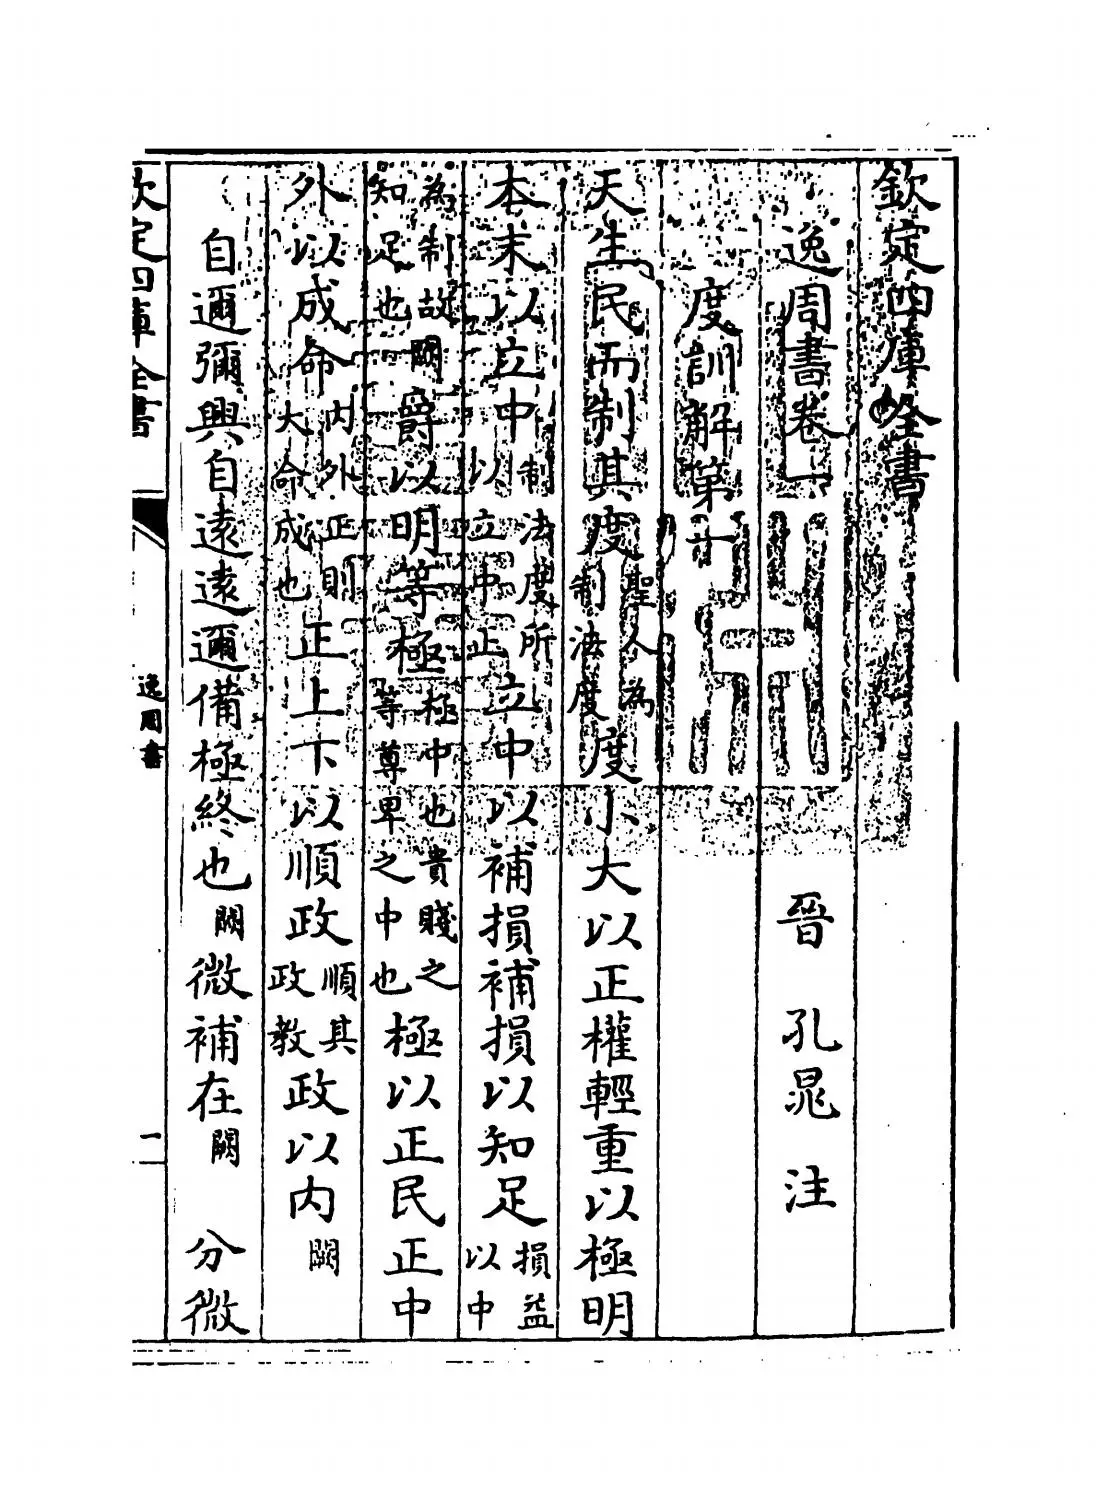 欽定四庫全書
逸周書卷一 晉 孔晁 注
度訓解第一
天生民而制其度聖人為制法度度小大以正權輕重以極明
本末以立中制法度所以立中正立中以補損補損以知足損益以中
為制故知足也闕爵以明等極極中也貴賤之等尊卑之中也極以正民正中
外以成命內外正則大命成也正上下以順政順其政教政以内闕
自邇彌興自遠遠邇備極終也闕微補在闕 分微
欽定四庫全書 逸周書 一